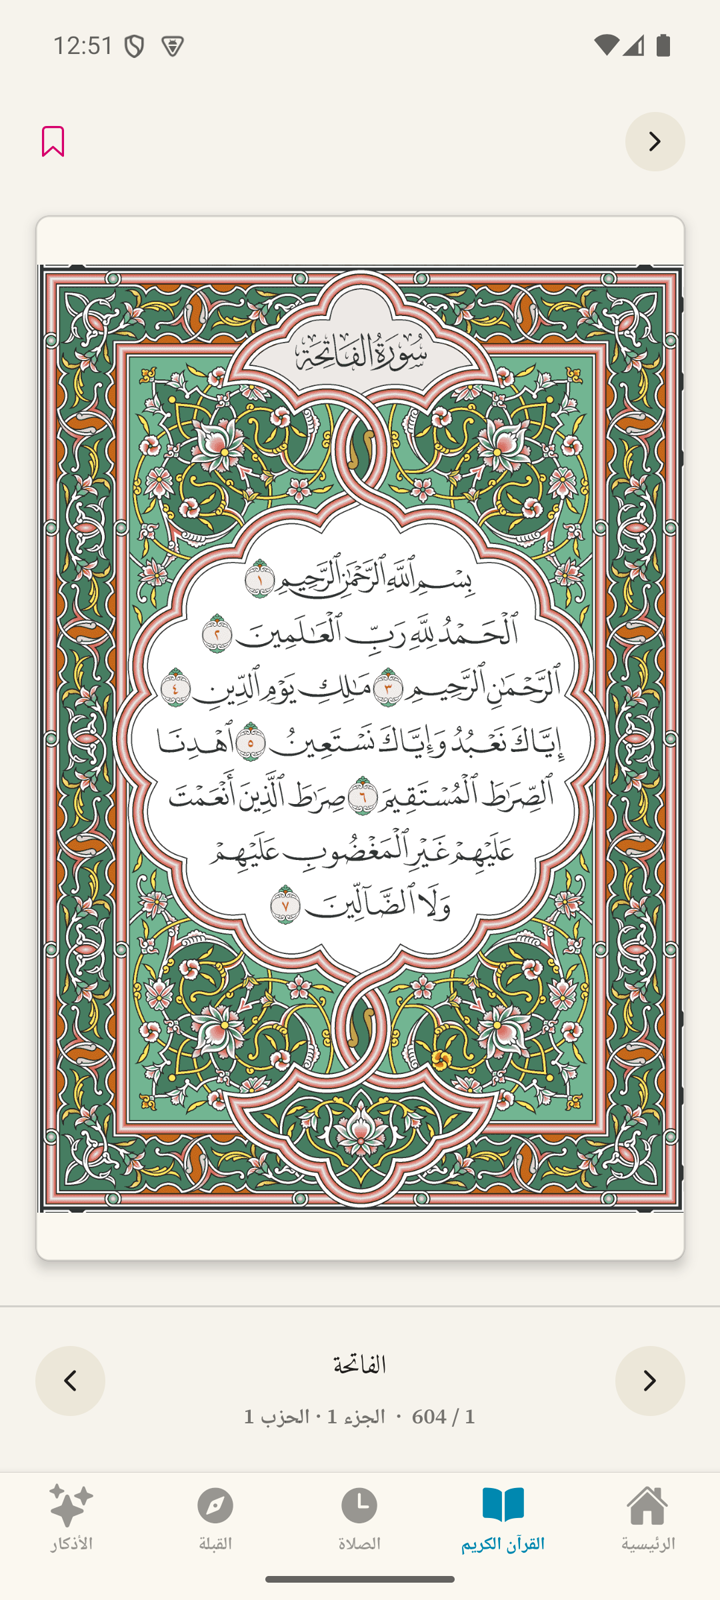 12:51
سُورَةُ الفَاتِحَة
بِسْمِ ٱللَّهِ ٱلرَّحْمَٰنِ ٱلرَّحِيمِ ١
ٱلْحَمْدُ لِلَّهِ رَبِّ ٱلْعَٰلَمِينَ ٢
ٱلرَّحْمَٰنِ ٱلرَّحِيمِ ٣ مَٰلِكِ يَوْمِ ٱلدِّينِ ٤
إِيَّاكَ نَعْبُدُ وَإِيَّاكَ نَسْتَعِينُ ٥ ٱهْدِنَا
ٱلصِّرَٰطَ ٱلْمُسْتَقِيمَ ٦ صِرَٰطَ ٱلَّذِينَ أَنْعَمْتَ
عَلَيْهِمْ غَيْرِ ٱلْمَغْضُوبِ عَلَيْهِمْ
وَلَا ٱلضَّآلِّينَ ٧
الفاتحة
1 / 604 · الجزء 1 · الحزب 1
الرئيسية
القرآن الكريم
الصلاة
القبلة
الأذكار